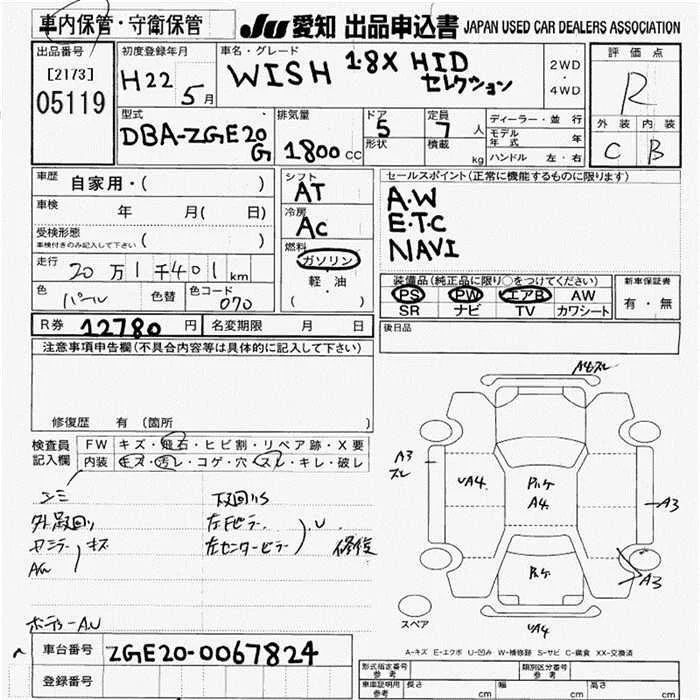 車内保管・守衛保管
JU 愛知 出品申込書 JAPAN USED CAR DEALERS ASSOCIATION
出品番号 [2173] 05119
初度登録年月 H22 5月
車名・グレード WISH 1.8X HID セレクション
2WD ・ 4WD
評価点 R
外装 内装
C B
型式 DBA-ZGE20G
排気量 1800 CC
ドア 5
形状
定員 7 人
積載 kg
ディーラー・並 行
モデル年式 年
ハンドル 左・右
車歴 自家用・( )
車検 年 月( 日)
受検形態 車検付きのみ記入して下さい ( )
走行 20万1千401km
色 パール 色替 色コード 070
シフト AT
冷房 AC
燃料 ガソリン
軽・油
( ・ )
セールスポイント(正常に機能するものに限ります)
A・W
E・T・C
NAVI
装備品(純正品に限り○をつけてください)
PS PW エアB AW
SR ナビ TV カワシート
新車保証書
有・無
R券 12780 円 名変期限 月 日
後日品
注意事項申告欄(不具合内容等は具体的に記入して下さい)
修復歴 有 (箇所 )
検査員記入欄
FW キズ・飛石・ヒビ割・リペア跡・X要
内装 キズ・汚レ・コゲ・穴・スレ・キレ・破レ
シミ
下廻りS
外装廻り
左Fピラー
左センターピラー
U 修復
キズ
ボディーAU
A4スレ
A3 スレ
UA4
A4
A3
A3
UA4
スペア
A-キズ E-エクボ U-凹み W-補修跡 S-サビ C-腐食 XX-交換済
車台番号 ZGE20-0067824
登録番号
型式指定番号 参考
類別区分番号 参考
車車証明用 参考 長さ cm 幅 cm 高さ cm